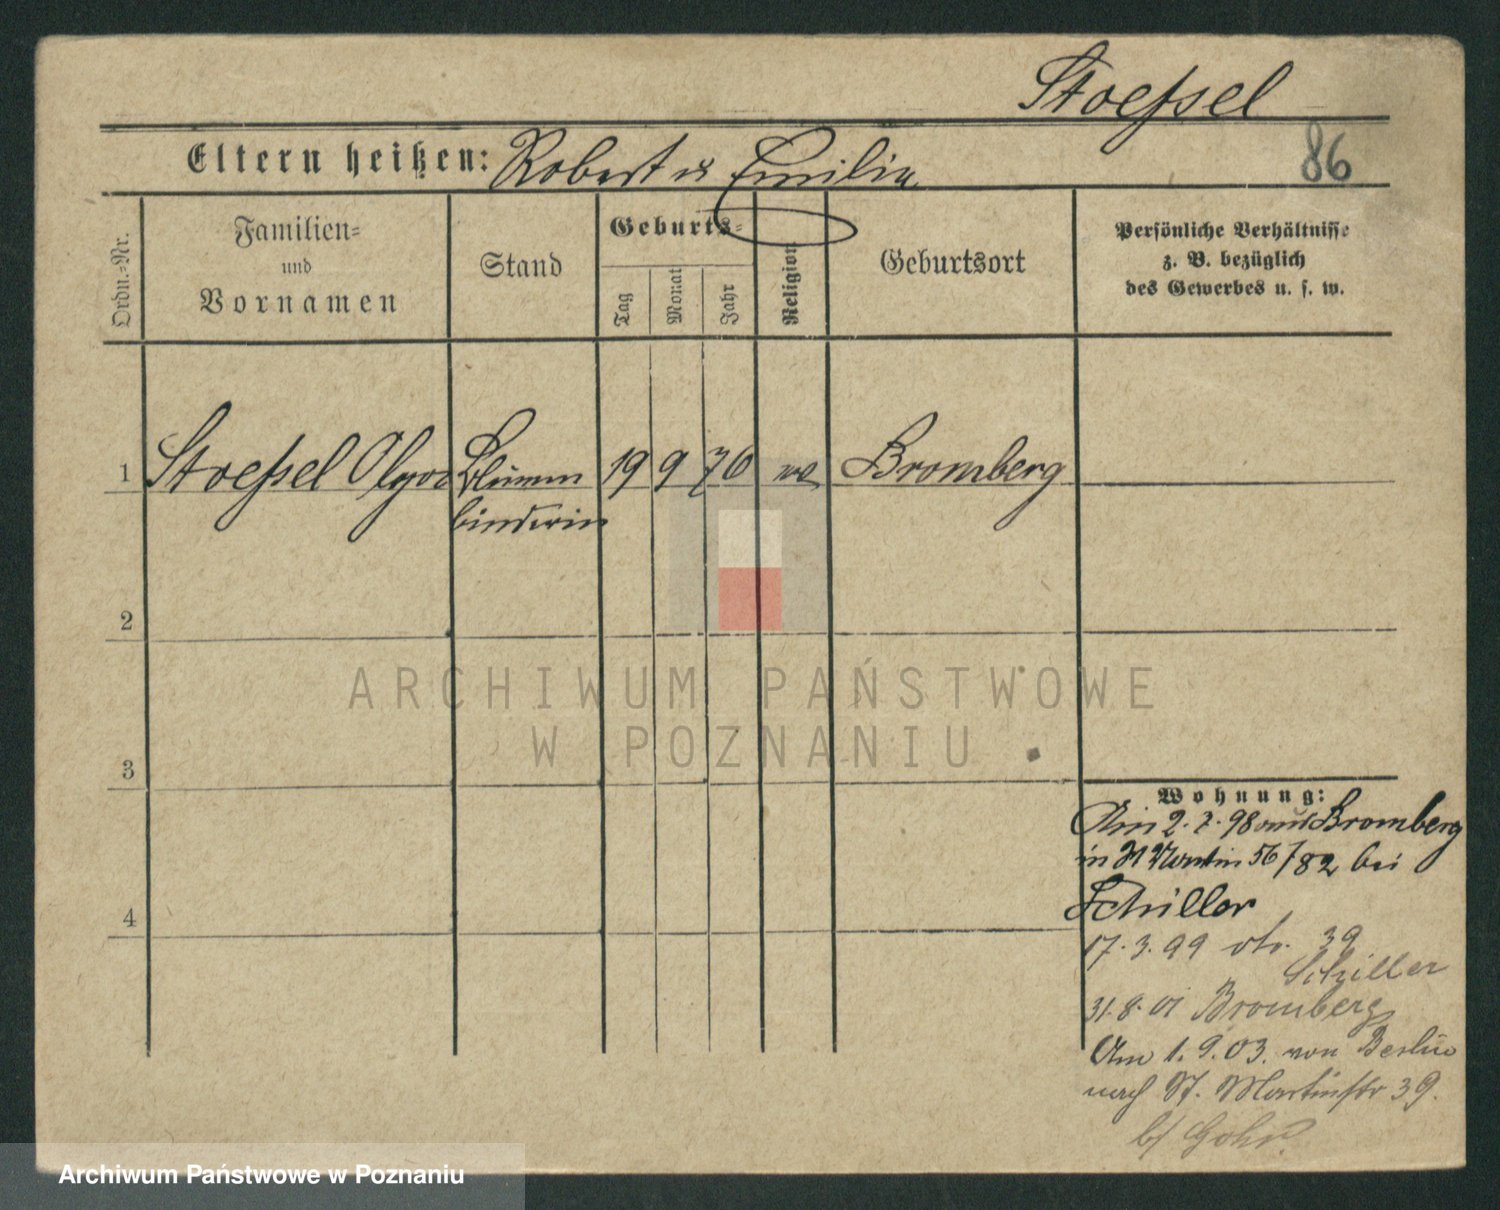 Stoeſsel
Eltern heißen: Robert u Emilie
86
Ordn.=Nr.
Familien=
und
Vornamen
Stand
Geburts=
Tag
Monat
Jahr
Religion
Geburtsort
Persönliche Verhältnisse
z. B. bezüglich
des Gewerbes u. s. w.
1 Stoeſsel Olga Blumen 19 9 76 Bromberg
binderin
2
ARCHIWUM PAŃSTWOWE
W POZNANIU
3
Wohnung:
Am 2.7.98 aus Bromberg
in St Martin 56/82 bei
Schiller
17.3.99 dto. 39
Schiller
31.8.01 Bromberg
4
Am 1.9.03. von Berlin
nach St. Martinstr 39.
b/
Archiwum Państwowe w Poznaniu